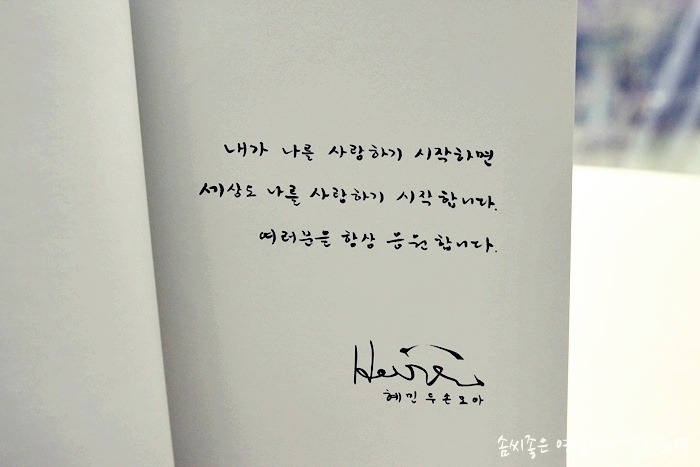 내가 나를 사랑하기 시작하면
세상도 나를 사랑하기 시작합니다.
여러분을 항상 응원합니다.
혜민 두손 모아
솜씨좋은